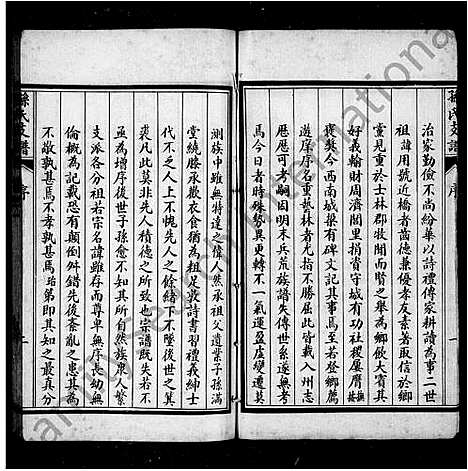 孫氏支譜
序
一
治家勤儉不尚紛華以詩禮傳家耕讀為事二世
祖諱用號近橋者齒德兼優孝友素著取信於鄉
里見重於士林郡牧聞而賢之舉為鄉飲大賓其
好義輸財周濟閭里捐資守城有功社稷屢膺
褒獎今西南城梁尚有碑文記其事焉至若登鄉薦
遊庠序名重藝林者尤指不勝屈此皆載入州志
歷歷可考嗣因明末兵荒族譜失傳世系遂無考
焉今日者時殊勢異文轉不一氣運盈虛變遷莫
測族中雖無特達之偉人然承祖父遺業子孫滿
堂繞膝承歡衣食猶為祖足敦詩書習禮義紳士
代不乏人上不愧先人之餘緒下不墜後世之箕
裘凡此莫非先人積德之所致也宗譜既失若不
亟為增序後世子孫愈不知其所自然族衆人繁
支派各分祖若宗名諱雖存而尊卑無序長幼無
倫概為記載恐有顛倒舛錯先後紊亂之患其為
不敬孰甚焉不孝孰甚焉珆第即其知之最真分
孫氏支譜
序
二